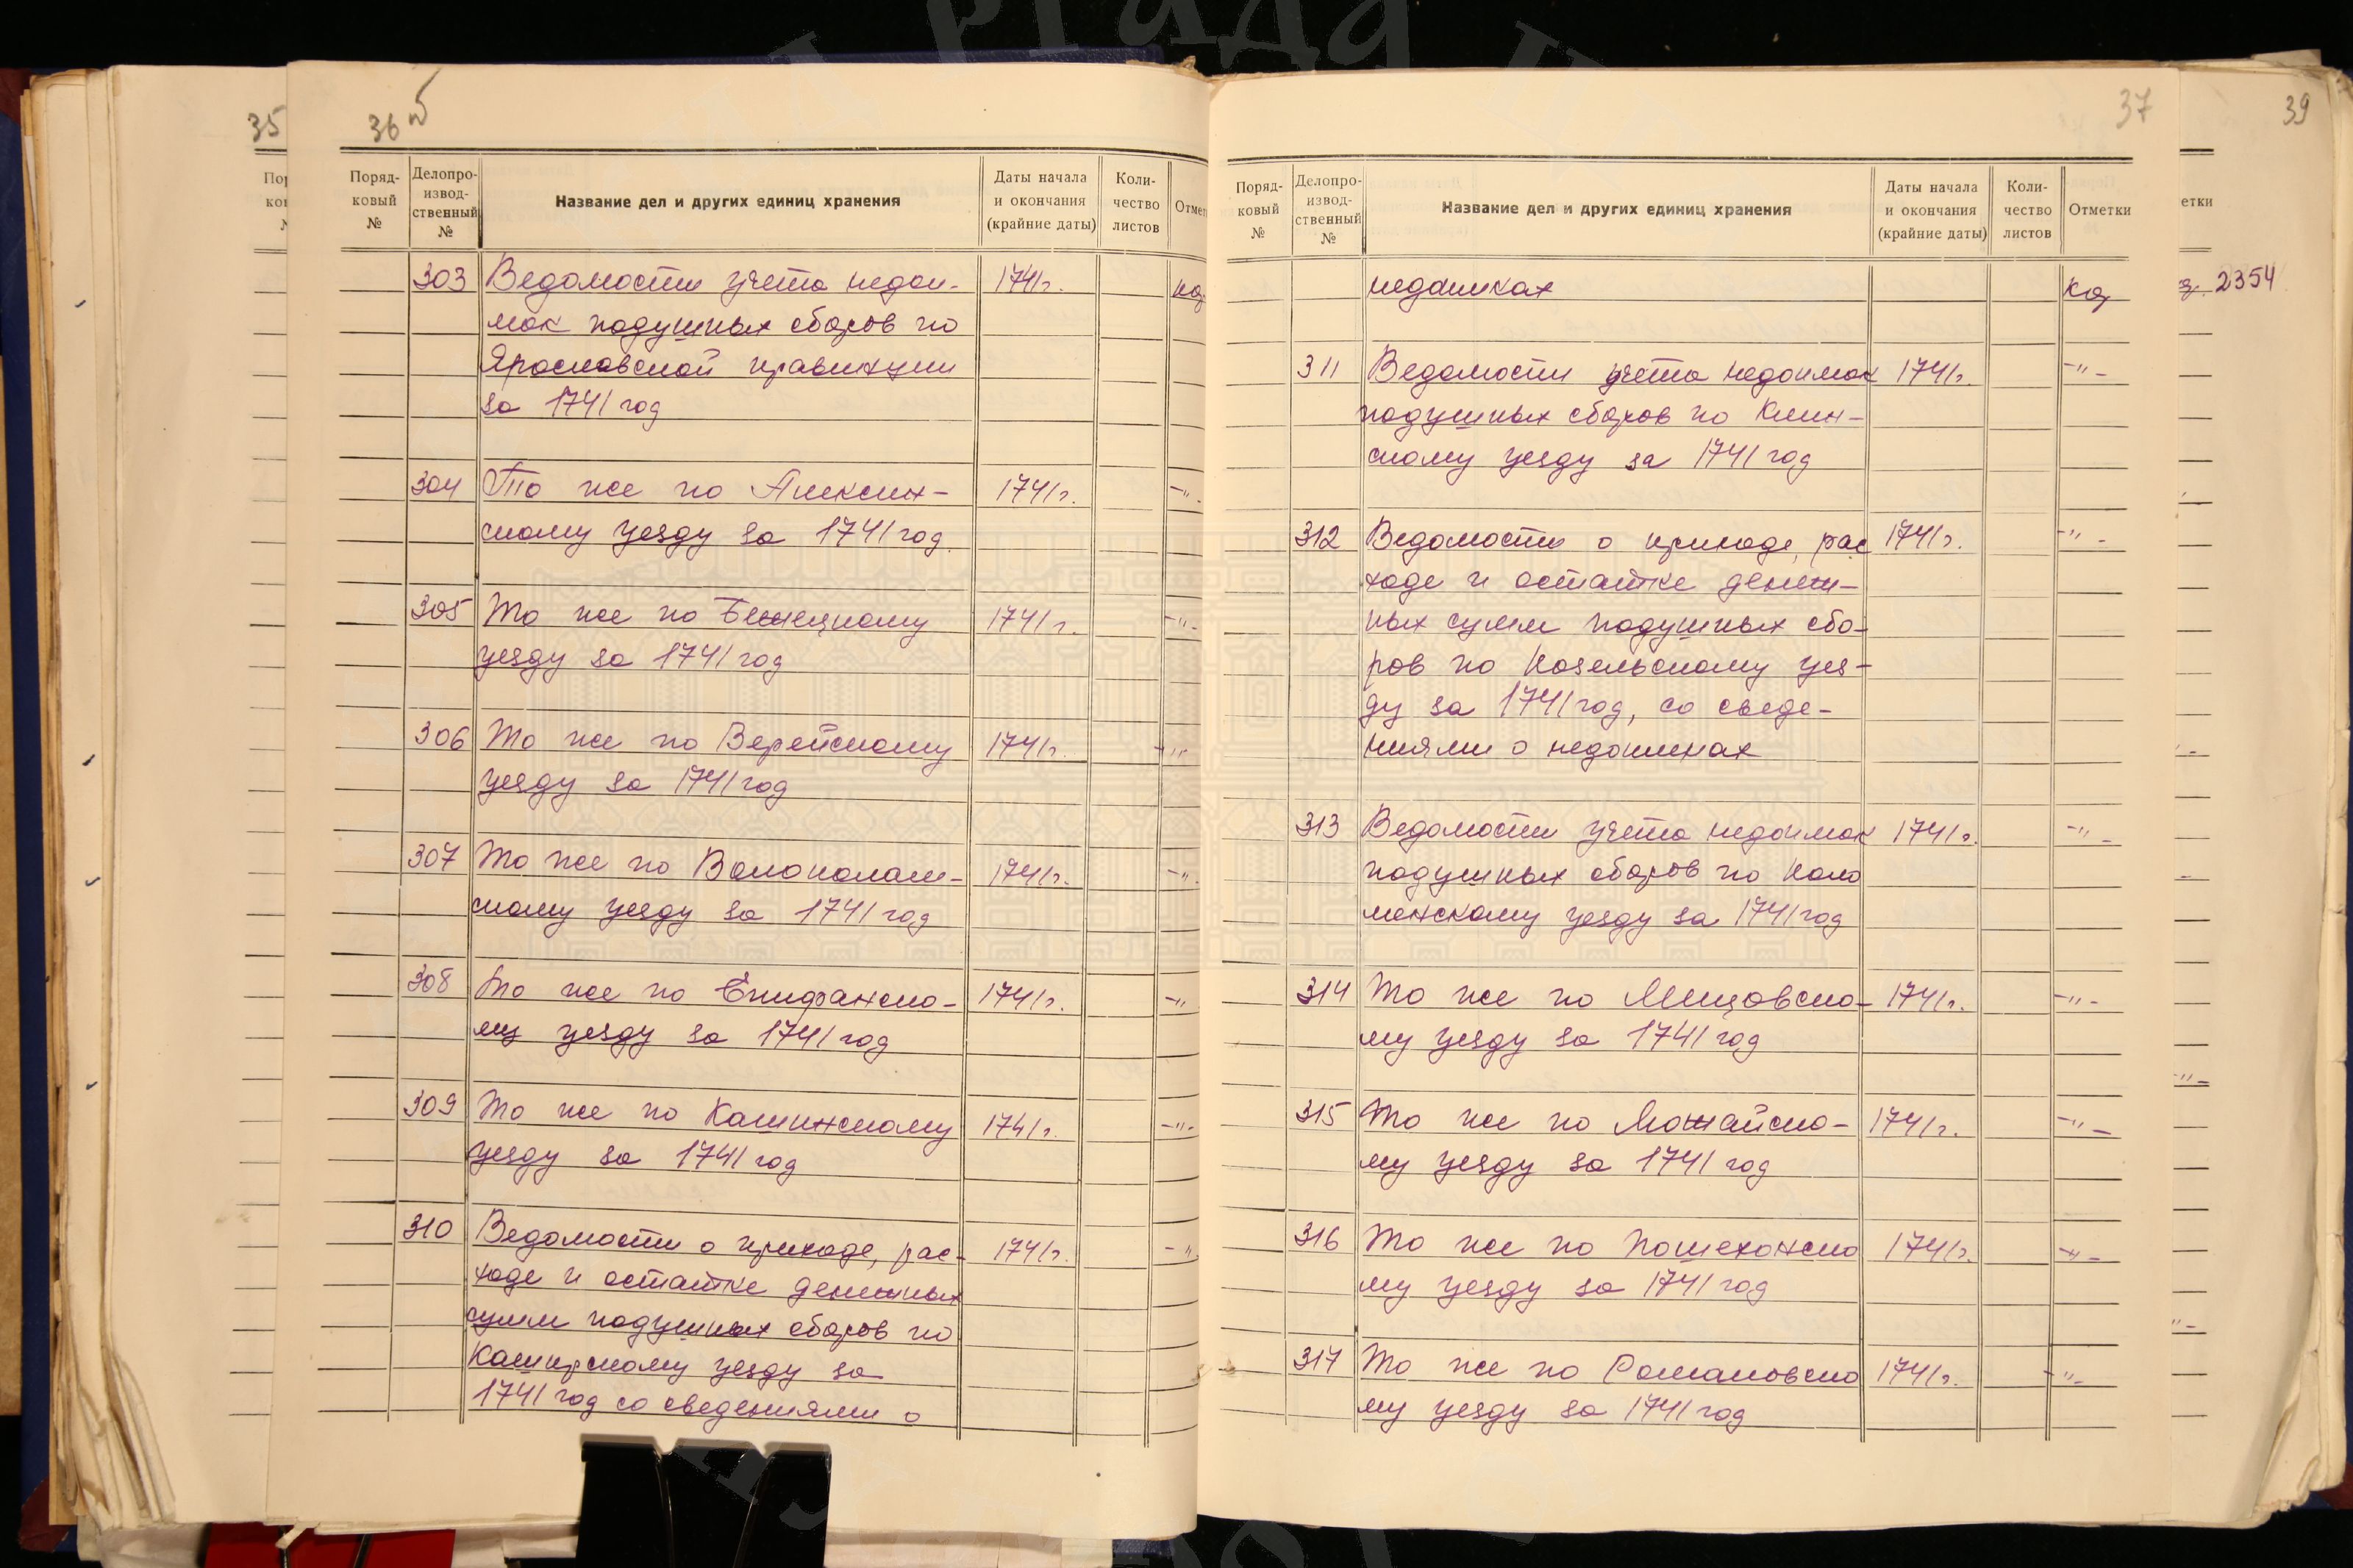 35
36 б
Поряд-
ковый
№
Делопро-
извод-
ственный
№
Название дел и других единиц хранения
Даты начала
и окончания
(крайние даты)
Коли-
чество
листов
303 Ведомости учета недои- 1741г.
мок подушных сборов по
Ярославской провинции
за 1741 год
304 То же по Алексин- 1741г. -"-
скому уезду за 1741 год
305 То же по Бежецкому 1741г. -"-
уезду за 1741 год
306 То же по Верейскому 1741г. -"
уезду за 1741 год
307 То же по Волоколам- 1741г. -"-
скому уезду за 1741 год
308 То же по Епифанско- 1741г. -"
му уезду за 1741 год
309 То же по Кашинскому 1741г. -"-
уезду за 1741 год
310 Ведомости о приходе, рас- 1741г. -"
ходе и остатке денежных
сумм подушных сборов по
Каширскому уезду за
1741 год со сведениями о
37
Поряд-
ковый
№
Делопро-
извод-
ственный
№
Название дел и других единиц хранения
Даты начала
и окончания
(крайние даты)
Коли-
чество
листов
Отметки
недоимках
311 Ведомости учета недоимок 1741г. -"-
подушных сборов по Клин-
скому уезду за 1741 год
312 Ведомости о приходе, рас 1741г. -"-
ходе и остатке денеж-
ных сумм подушных сбо-
ров по Козельскому уез-
ду за 1741 год, со сведе-
ниями о недоимках
313 Ведомости учета недоимок 1741г. -"-
подушных сборов по Коло
менскому уезду за 1741 год
314 То же по Мещовско- 1741г. -"-
му уезду за 1741 год
315 То же по Можайско- 1741г. -"-
му уезду за 1741 год
316 То же по Пошехонско 1741г. -"-
му уезду за 1741 год
317 То же по Романовско 1741г. -"-
му уезду за 1741 год
39
етки
2354